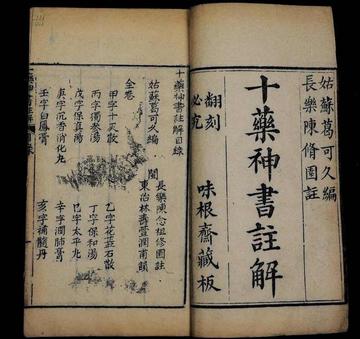 姑蘇葛可久編
長樂陳脩園註
十藥神書註解
翻刻必究
味根齋藏板
十藥神書註解目錄
姑蘇葛可久編
閩
長樂陳念祖修園註
東冶林壽萱潤甫韻
全卷
甲字十灰散
乙字花蕊石散
丙字獨參湯
丁字保和湯
戊字保真湯
己字太平丸
庚字沉香消化丸
辛字潤肺膏
壬字白鳳膏
癸字補髓丹